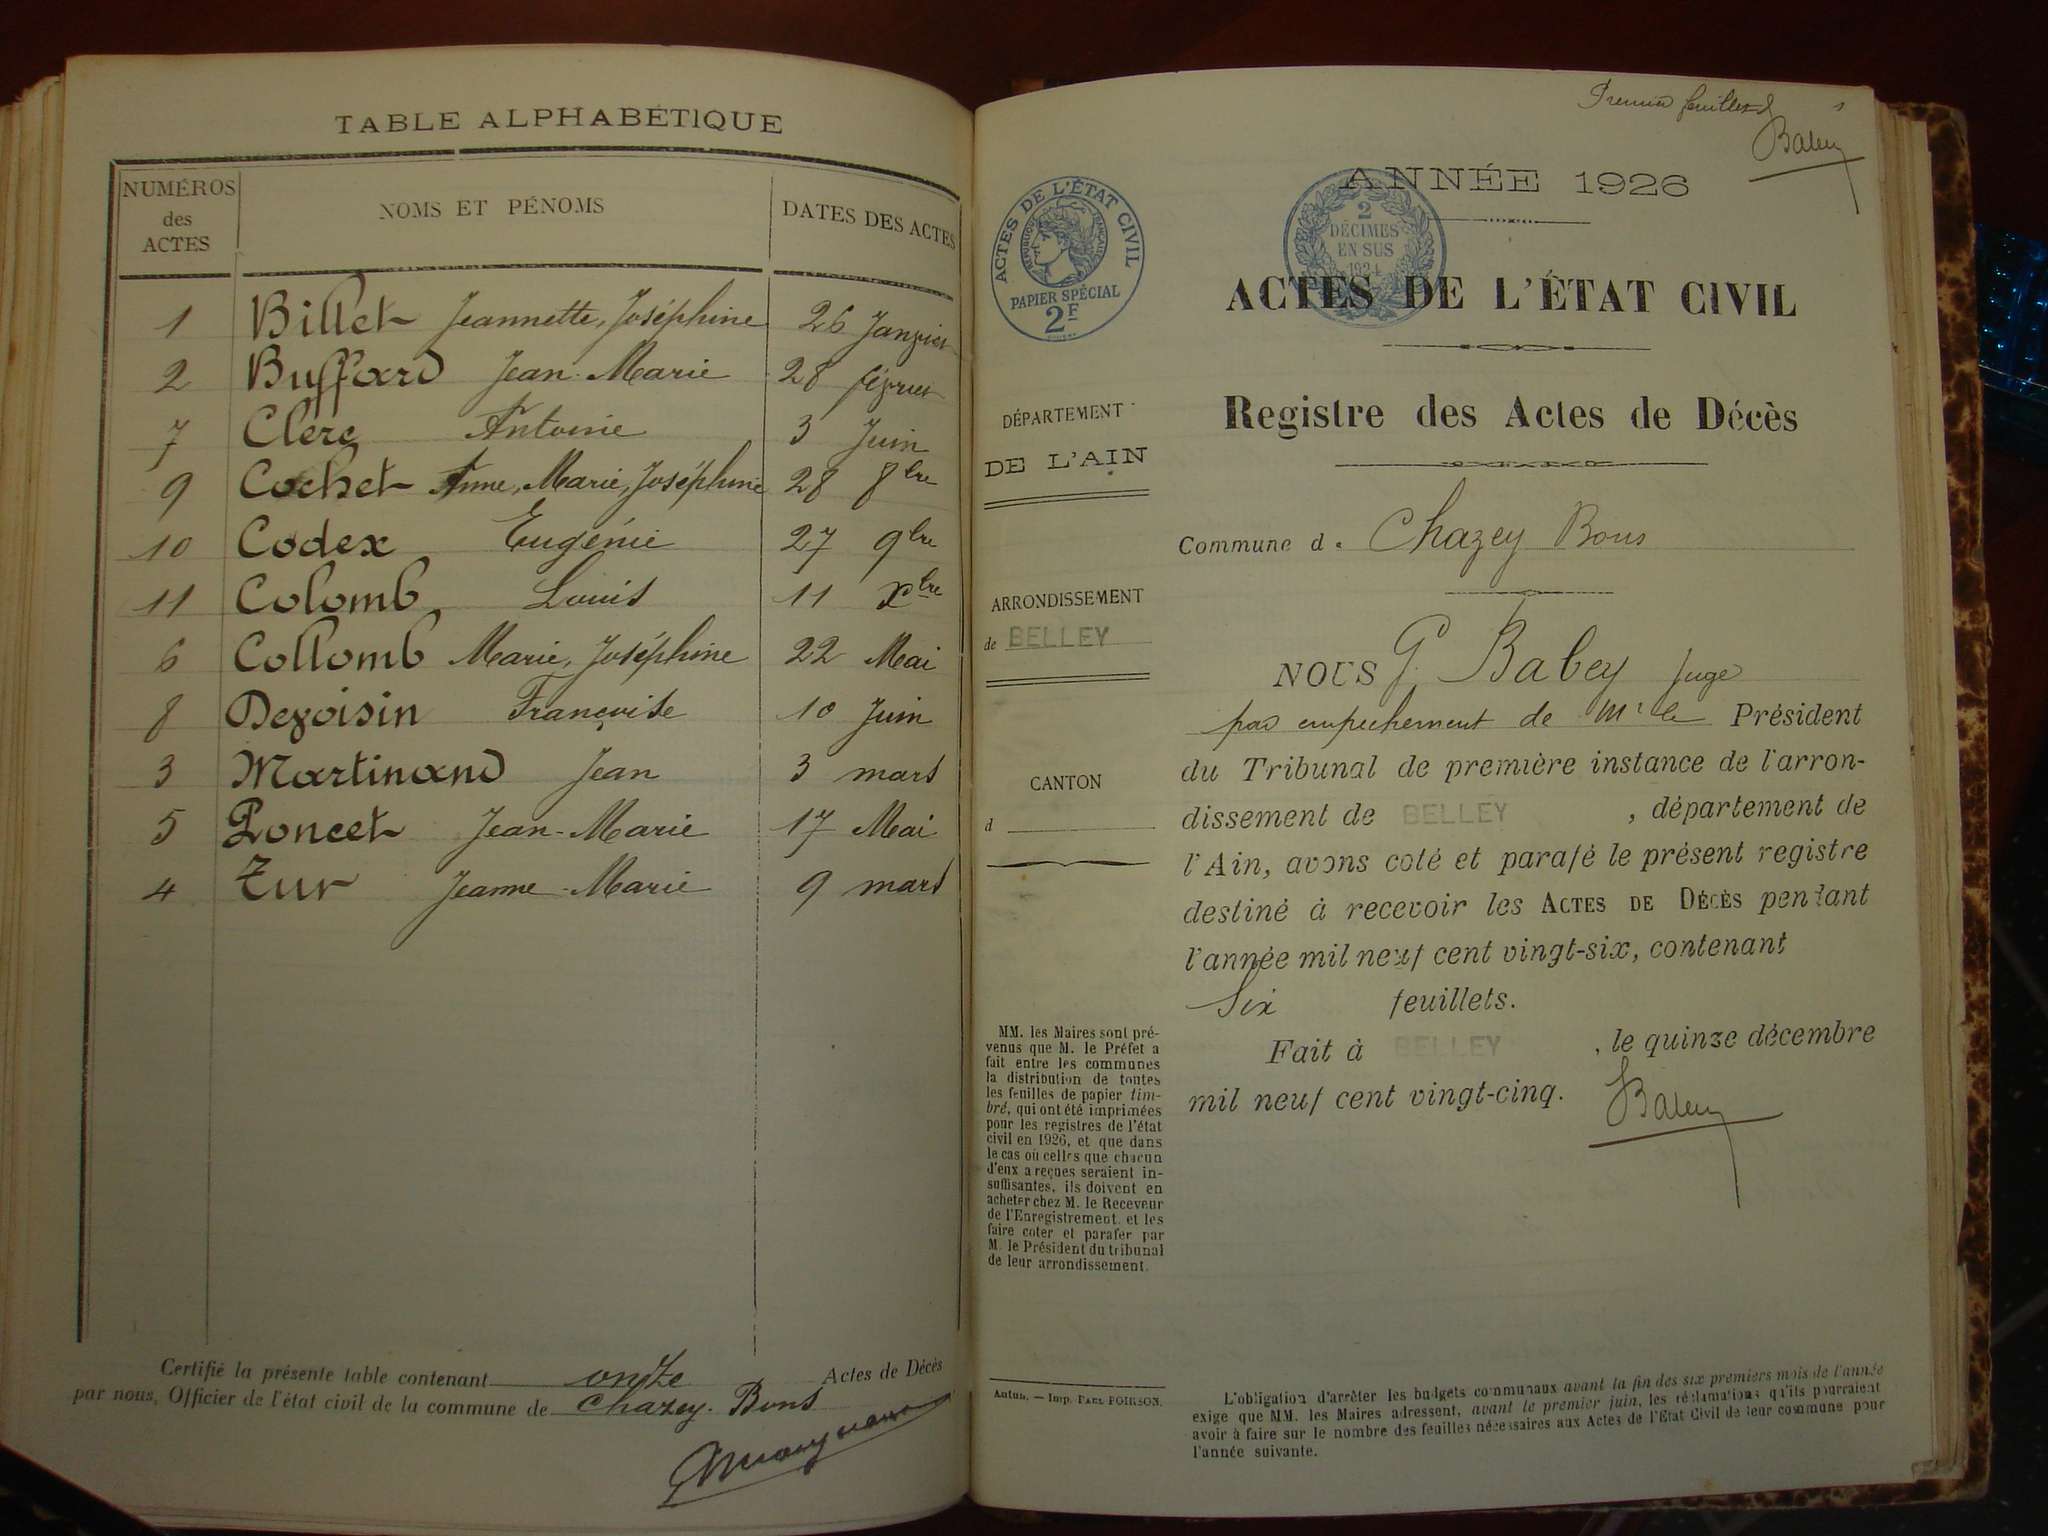 TABLE ALPHABÉTIQUE
NUMÉROS des ACTES
NOMS ET PÉNOMS
DATES DES ACTES
1 Billet Jeannette, Joséphine 26 Janvier
2 Buffard Jean-Marie 28 février
7 Clerc Antoine 3 Juin
9 Cochet Anne, Marie, Joséphine 28 8bre
10 Codex Eugénie 27 9bre
11 Colomb Louis 11 Xbre
6 Collomb Marie, Joséphine 22 Mai
8 Devoisin Françoise 10 Juin
3 Martinand Jean 3 mars
5 Poncet Jean-Marie 17 Mai
4 Zur Jeanne-Marie 9 mars
Certifié la présente table contenant onze Actes de Décès
par nous, Officier de l'état civil de la commune de Chazey-Bons
Premier feuillet
Babey
ANNÉE 1926
ACTES DE L'ÉTAT CIVIL
RÉPUBLIQUE FRANÇAISE
PAPIER SPÉCIAL
2F
2
DÉCIMES
EN SUS
1924
ACTES DE L'ÉTAT CIVIL
Registre des Actes de Décès
DÉPARTEMENT
DE L'AIN
ARRONDISSEMENT
de BELLEY
CANTON
d
MM. les Maires sont pré-
venus que M. le Préfet a
fait entre les communes
la distribution de toutes
les feuilles de papier tim-
bré, qui ont été imprimées
pour les registres de l'état
civil en 1926, et que dans
le cas où celles que chacun
d'eux a reçues seraient in-
suffisantes, ils doivent en
acheter chez M. le Receveur
de l'Enregistrement et les
faire coter et parafer par
M. le Président du tribunal
de leur arrondissement.
Autun, — Imp. PAUL POIRSON.
Commune de Chazey Bons
NOUS G. Babey Juge
par empechement de Mr le Président
du Tribunal de première instance de l'arron-
dissement de BELLEY, département de
l'Ain, avons coté et parafé le présent registre
destiné à recevoir les ACTES DE DÉCÈS pendant
l'année mil neuf cent vingt-six, contenant
Six feuillets.
Fait à BELLEY, le quinze décembre
mil neuf cent vingt-cinq.
Babey
L'obligation d'arrêter les budgets communaux avant la fin des six premiers mois de l'année
exige que MM. les Maires adressent, avant le premier juin, les réclamations qu'ils pourraient
avoir à faire sur le nombre des feuilles nécessaires aux Actes de l'État Civil de leur commune pour
l'année suivante.